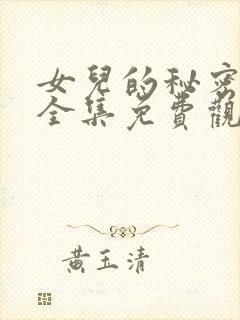 女兒的秘密
全集免費觀
黃玉清